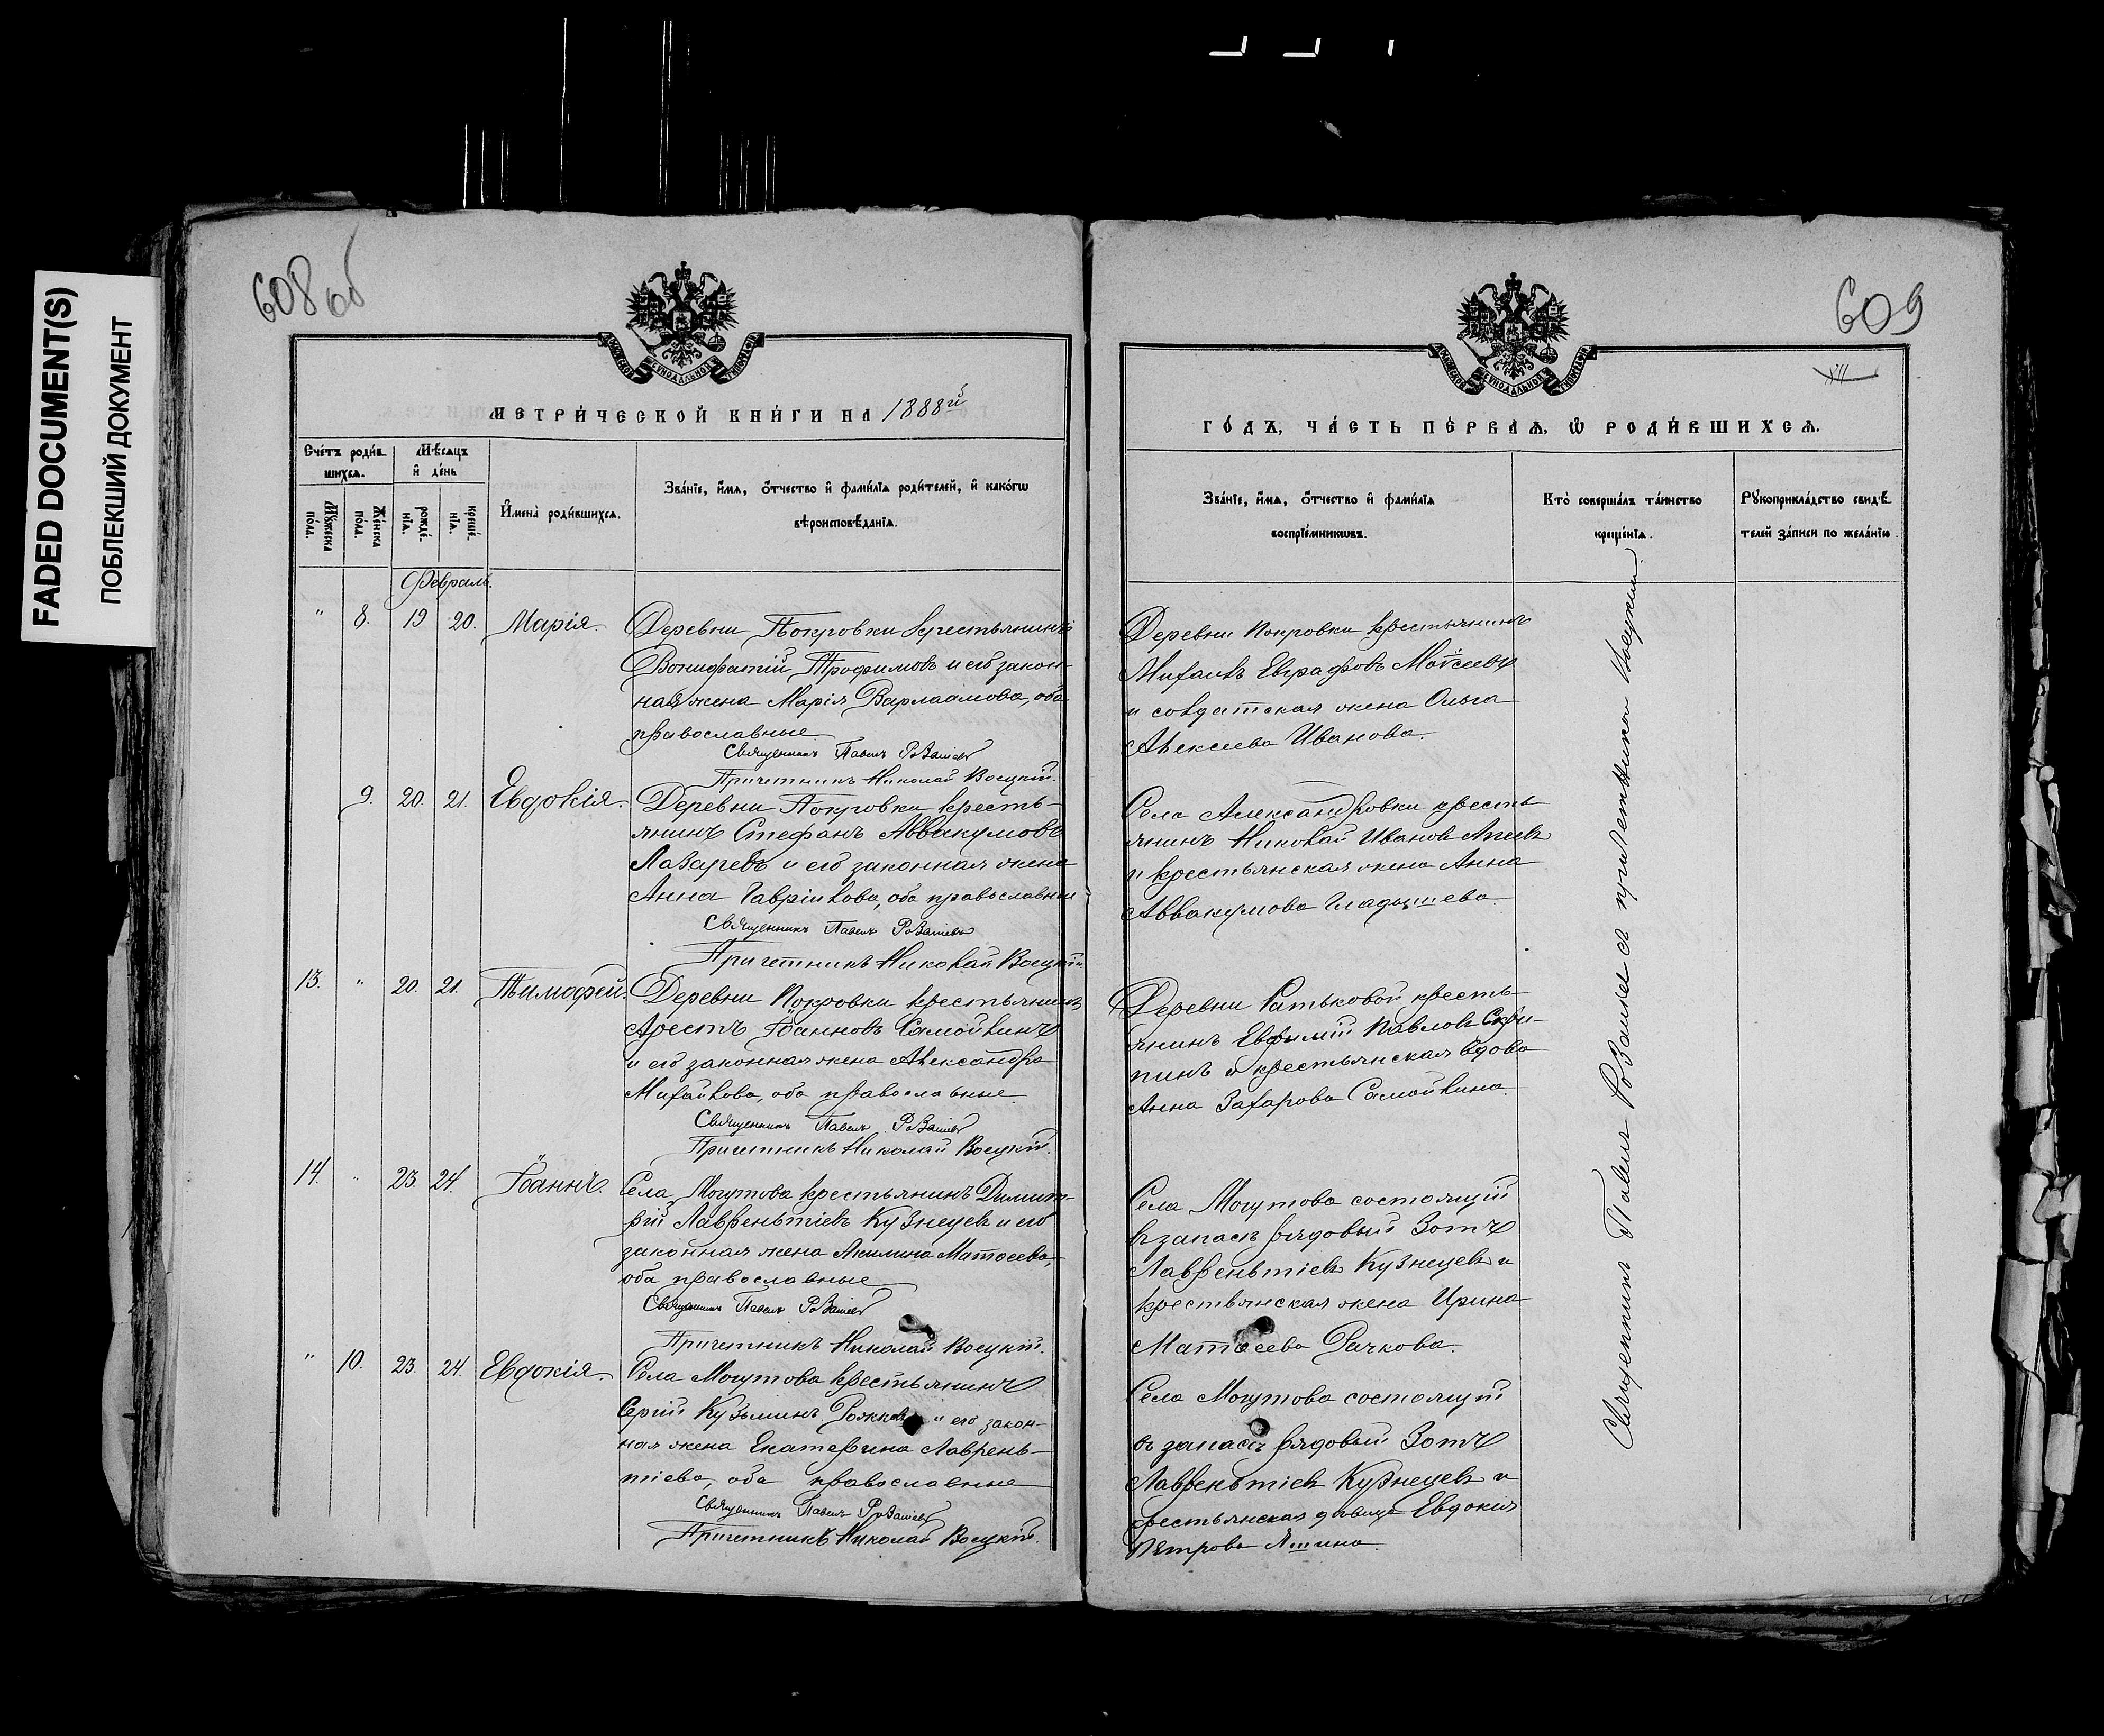 FADED DOCUMENT(S)
ПОБЛЕКШИЙ ДОКУМЕНТ
608 об
МЕТРИ́ЧЕСКОЙ КНИ́ГИ НА 1888й
Сче́тъ роди́в
шихсѧ.
Мѣ́сяцъ
и де́нь
Мꙋ́жеска
по́ла.
Же́нска
по́ла.
рожде́-
нїѧ.
креще́-
нїѧ.
И҆мена̀ роди́вшихсѧ.
Зва́нїе, и҆́мѧ, ѻ҆́тчество и҆ фами́лїѧ роди́телей, и҆ како́гѡ
вѣроисповѣ́данїѧ.
Февраль.
" 8. 19 20. Марія.
Деревни Покровки крестьянинъ
Вонифатій Трофимовъ и его закон-
ная жена Марія Варлаамова, оба
православные.
Священникъ Павелъ
Причетникъ Николай Воецкій.
9. 20. 21. Евдокія.
Деревни Покровки кресть-
янинъ Стефанъ Аввакумовъ
Лазаревъ и его законная жена
Анна Гаврiилова, оба православные
Священникъ Павелъ
Причетникъ Николай Воецкій.
13. " 20. 21. Тимофей.
Деревни Покровки крестьянинъ
Арестъ Іоанновъ Самойлинъ
и его законная жена Александра
Михайлова, оба православные.
Священникъ Павелъ
Причетникъ Николай Воецкій.
14. " 23. 24. Іоаннъ.
Села Могутова крестьянинъ Димит-
рій Лаврентіевъ Кузнецовъ и его
законная жена Акилина Матѳеева,
оба православные
Священникъ Павелъ
Причетникъ Николай Воецкій.
" 10. 23. 24. Евдокія.
Села Могутова крестьянинъ
Сергій Кузьминъ и его закон-
ная жена Екатерина Лаврень-
тіева, оба православные
Священникъ Павелъ
Причетникъ Николай Воецкій.
609
ХII
ГО́ДЪ, ЧА́СТЬ ПЕ́РВАѦ, Ѡ҆ РОДИ́ВШИХСѦ.
Зва́нїе, и҆́мѧ, ѻ҆́тчество и҆ фами́лїѧ
воспрїе́мникѡвъ.
Кто̀ соверша́лъ та́инство
креще́нїѧ.
Рꙋкоприкла́дство свидѣ́-
телей за́писи по жела́нїю.
Деревни Покровки крестьянинъ
Михаилъ Евграфовъ Моѵсеевъ
и солдатская жена Ольга
Алексеева Иванова.
Села Александровки кресть-
янинъ Николай Ивановъ Агеевъ
и крестьянская жена Анна
Аввакумова Гладышева.
Деревни Ратьковой кресть-
янинъ Евфимій Павловъ Скри-
пинъ и крестьянская вдова
Анна Захарова Самойлина.
Села Могутова состоящій
въ запасѣ рядовый Зотъ
Лаврентьіевъ Кузнецовъ и
крестьянская жена Ирина
Матѳеева Рачкова.
Села Могутова состоящій
въ запасѣ рядовый Зотъ
Лаврентьіевъ Кузнецовъ и
крестьянская дѣвица Евдокія
Петрова Яшина.
Священникъ Павелъ съ причетникомъ Воецкимъ.